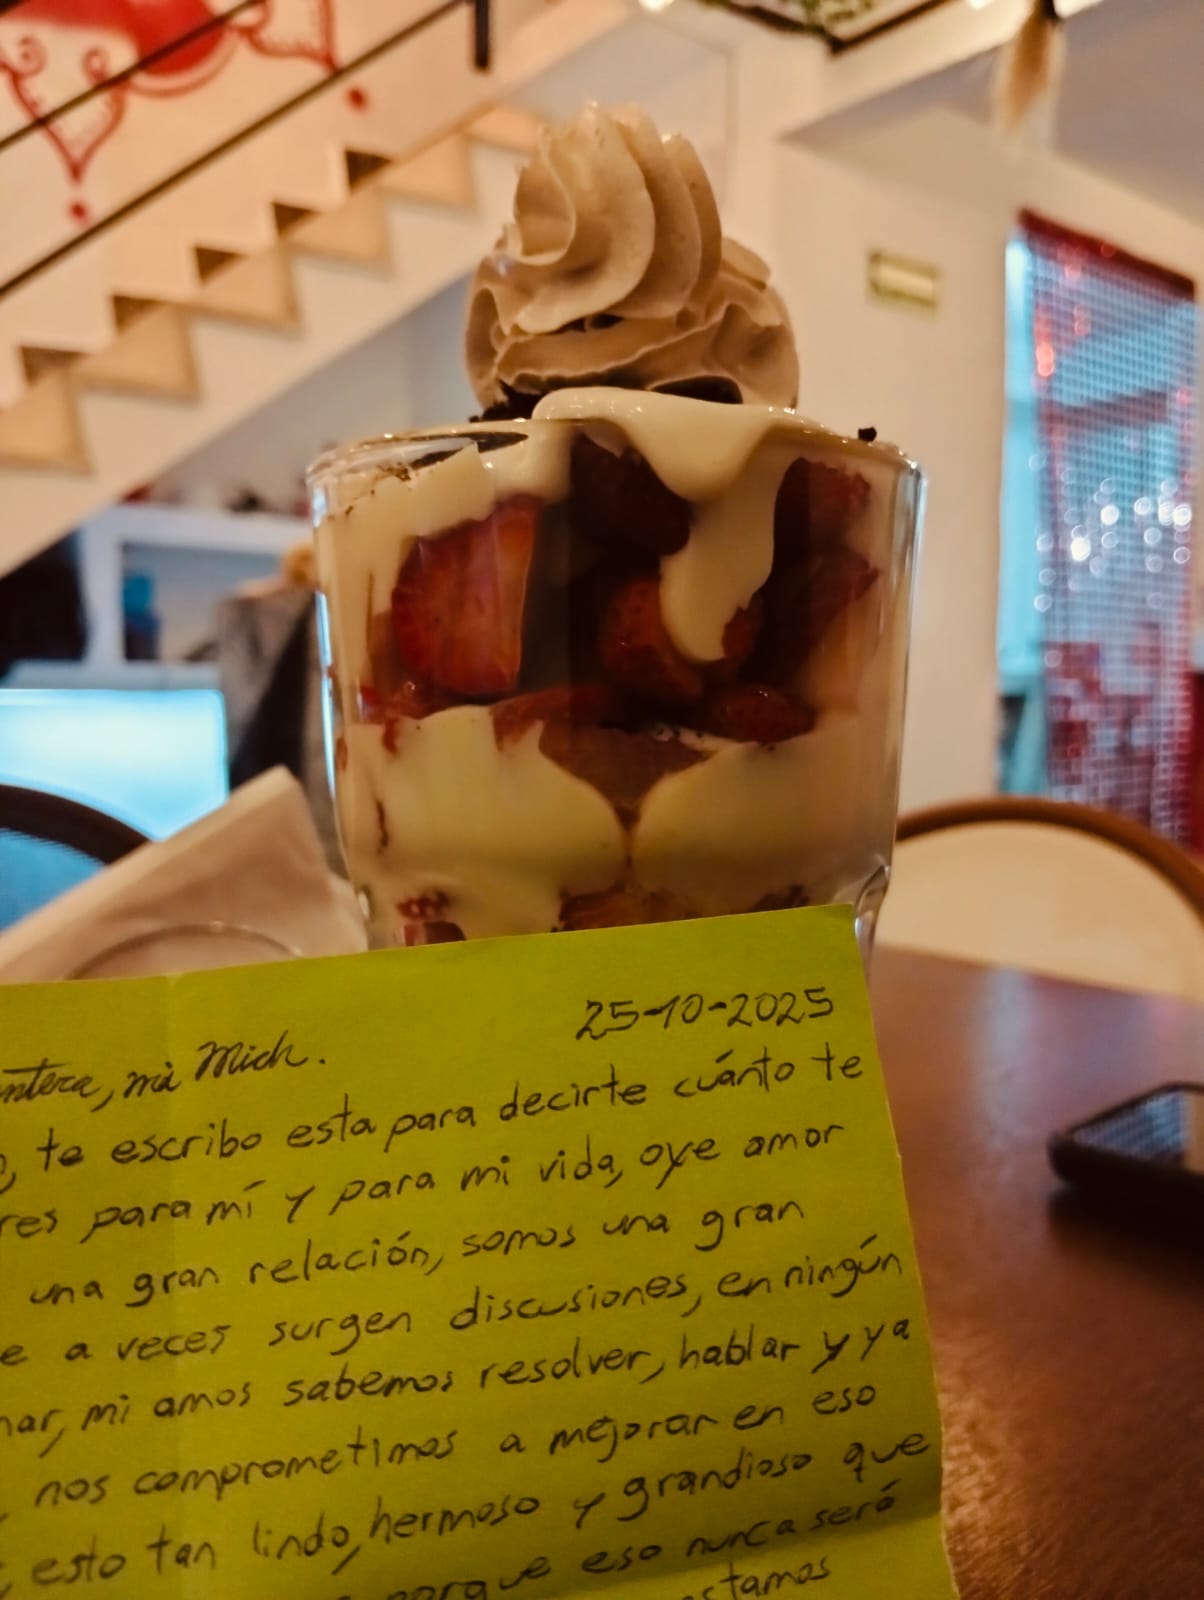 25-10-2025
mi Mich.
te escribo esta para decirte cuánto te
para mí y para mi vida, oye amor
una gran relación, somos una gran
a veces surgen discusiones, en ningún
mi amos sabemos resolver, hablar y ya
nos comprometimos a mejorar en eso
esto tan lindo, hermoso y grandioso que
porque eso nunca será
estamos